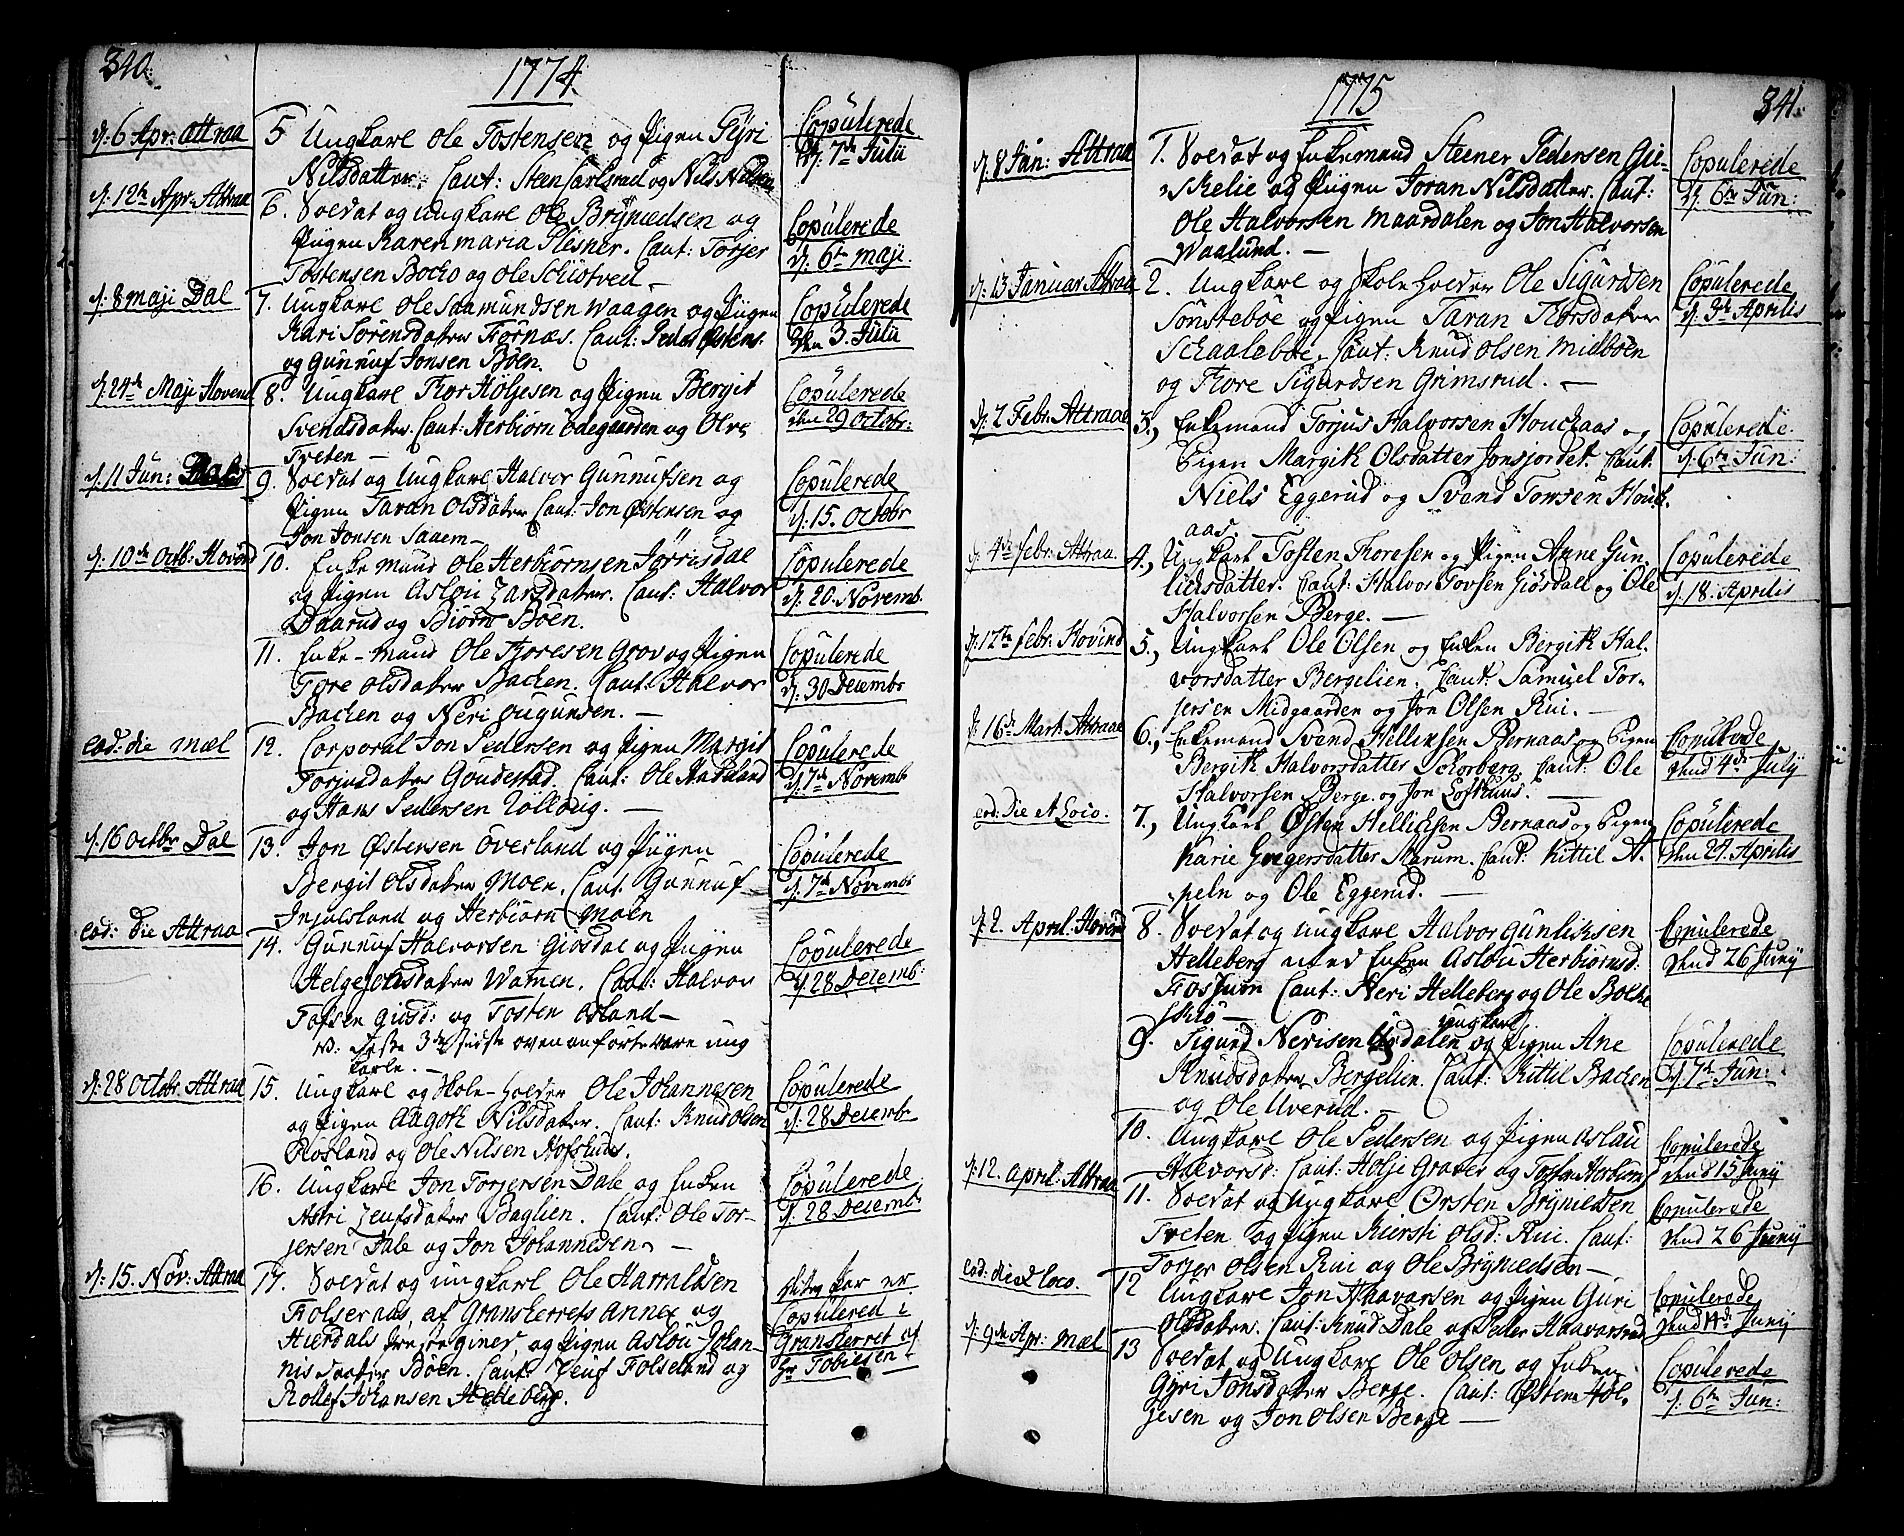 340.
1774.
d: 6 Apr: Attraa
5 Ungkarl Ole Tostensen og Pigen Gÿri
Nilsdatter. Caut: Steen Carlsrud og Nils Nilsen
Copulerede
d: 7de Julii
d: 12te Apr: Attraa
6. Soldat og Ungkarl Ole Brÿnildsen og
Pigen Karen maria Plesner. Caut: Torjer
Tostensen Bocko og Ole Schiotved.
Copulerede
d: 6te maji.
d: 8 maji Dal
7. Ungkarl Ole Saamundsen Waagen og Pigen
Kari Sørensdater Fornæs. Caut: Peder Østens:
og Gunnuf Jonsen Boen.
Copulerede
den 3. Julii
d: 24de Maji Hovend
8. Ungkarl Thor Høljesen og Pigen Bergit
Svendsdater. Caut: Herbiorn Ødegaarden og Ole
Tveten —
Copulerede
den 29 Octobr:
d: 11 Jun: Dal
9. Soldat og Ungkarl Halvor Gunnufsen og
Pigen Taran Olsdater Caut: Jon Østensen og
Jon Jonsen Sauem —
Copulerede
d: 15. Octobr
d: 10de Octb: Hovend
10. Enke mand Ole Herbiornsen Jørrisdal
og Pigen Aslou Larsdater. Caut: Halvor
Daarud og Biørn Böen.
Copulerede
d: 20. Novemb.
11. Enke-mand Ole Thoresen Grov og Pigen
Tore Olsdater Backen. Caut: Halvor
Backen og Neri Augunsen. —
Copulerede
d: 30 Decembr
eod: die Mæl
12. Corporal Jon Pedersen og Pigen Margit
Torjusdater Goudestad. Caut: Ole Haddeland
og Hans Pedersen Tolloug. —
Copulerede
d: 7de Novembr
d: 16 Octbr Dal
13. Jon Østensen Overland og Pigen
Bergit Olsdater Moen. Caut: Gunnuf
Ingulsland og Herbiorn Moen
Copulerede
d: 7de Novembr
eod: Die Attraa
14. Gunnuf Halvorsen Giosdal og Pigen
Helge Jonsdater Watnen. Caut: Halvor
Tofsen Giosd: og Tosten Øsland —
NB: disse 3de sidste oven anførte vare ung
karle. —
Copulerede
d 28 Decemb:
d: 28 Octobr. Attraa
15. Ungkarl og Skole-holder Ole Johannesen
og Pigen Aagoth Nilsdater. Caut: Knud Olsen
Rosland og Ole Nilsen Hofshuus.
Copulerede
d: 28 Decembr
16. Ungkarl Jon Torgersen Dale og Enken
Astri Leufsdater Baglien. Caut: Ole Tor-
jersen Dale og Jon Johannesen. —
Copulerede
d: 28 Decembr
d: 15. Nov: Attraa
17. Soldat og ungkarl Ole Haraldsen
Folsernæs, af Gransherrets Annex og
Hierdals Præstegield, og Pigen Aslou Johan-
nisdatter Böen. Caut: Leuf Folseland og
Rollef Johansen Helleberg.
dette par er
Copulered i
Gransherret af
Hr Tobiesen

341.
1775
d: 8 Jan: Attraa
1. Soldat og Enkemand Steener Pedersen Gie-
schelie og Pigen Joran Nilsdatter. Caut:
Ole Halvorsen Maardalen og Jon Halvorsen
Waalund. —
Copulerede
d. 6te Jun:
d: 13 Januar Attraa
2. Ungkarl og Skoleholder Ole Sigurdsen
Sønsteböe og Pigen Taran Thorsdater
Schaaleböe. Caut: Knud Olsen Midböen
og Thore Sigurdsen Grimsrud. —
Copulerede
d. 3de Aprilis
d. 2 Febr: Attraae
3., Enkemand Torjus Halvorsen Houchaas og
Pigen Margith Olsdatter Jonsjordet. Caut:
Niels Eggerud og Svend Tonsen Houk
aas. —
Copulerede.
d. 6te Jun:
d: 4de febr: Attraa.
4., Ungkarl Tosten Thoresen og Pigen Anne Gun-
licksdatter. Caut: Halvor Tovsen Giosdall og Ole
Halvorsen Berge. —
Copulerede
d. 18. Aprilis
d: 12te febr: Hovind
5., Ungkarl Ole Olsen og Enken Bergith Hal-
vorsdatter Bergelien. Caut: Samuel Tor-
jersen Midgaarden og Jon Olsen Rui. —
d. 16de Mart. Attraae
6., Enkemand Svend Hellicksen Bernaas og Pigen
Bergith Halvorsdatter Schorberg. Caut: Ole
Halvorsen Berge. og Jon Lofthuus. —
Copulerede
dend 4de Julÿ
eod: Die A Loco.
7., Ungkarl Østen Hellicksen Bernaas og Pigen
Karie Gregersdatter Marum. Caut: Kittil A.
peln og Ole Eggerud. —
Copulerede
den 24. Aprilis
d. 2. April: Hovind
8. Soldat og Ungkarl Halvor Gunlichsen
Helleberg med Enken Aslou Herbiørnsd:
Fosshuun Caut: Neri Helleberg og Ole Bolke
skiö —
Copulerede
dend 26 Junÿ
9. Sigurd Nerisen Urdalen ungkarl og Pigen Ane
Knudsdater Bergelien. Caut: Kittil Backen
og Ole Uverud.
Copulerede
d. 7de Jun:
10. Ungkarl Ole Pedersen og Pigen Aslau
Halvorsd: Caut: Holje Graver og Tosten Herbiørn
Copulerede
dend 15 Junÿ
d: 12. April: Attraa
11. Soldat og Ungkarl Orsten Brÿnildsen
Tveten og Pigen Kiersti Olsd: Rui. Caut:
Torjer Olsen Rui og Ole Brÿnildsen —
Copulerede
dend 26 Junÿ
eod: die & loco.
12 Ungkarl Jon Haavorsen og Pigen Guri
Olsdater. Caut: Knud Dale og Peder Haavorsrud
Copulerede
dend 14de Junÿ
d: 9de Apr: Mæl
13 Soldat og Ungkarl Ole Olsen og Enken
Gÿri Jonsdater Berge. Caut: Østen Hol-
jesen og Jon Olsen Berge —
Copulerede
d. 6te Jun: